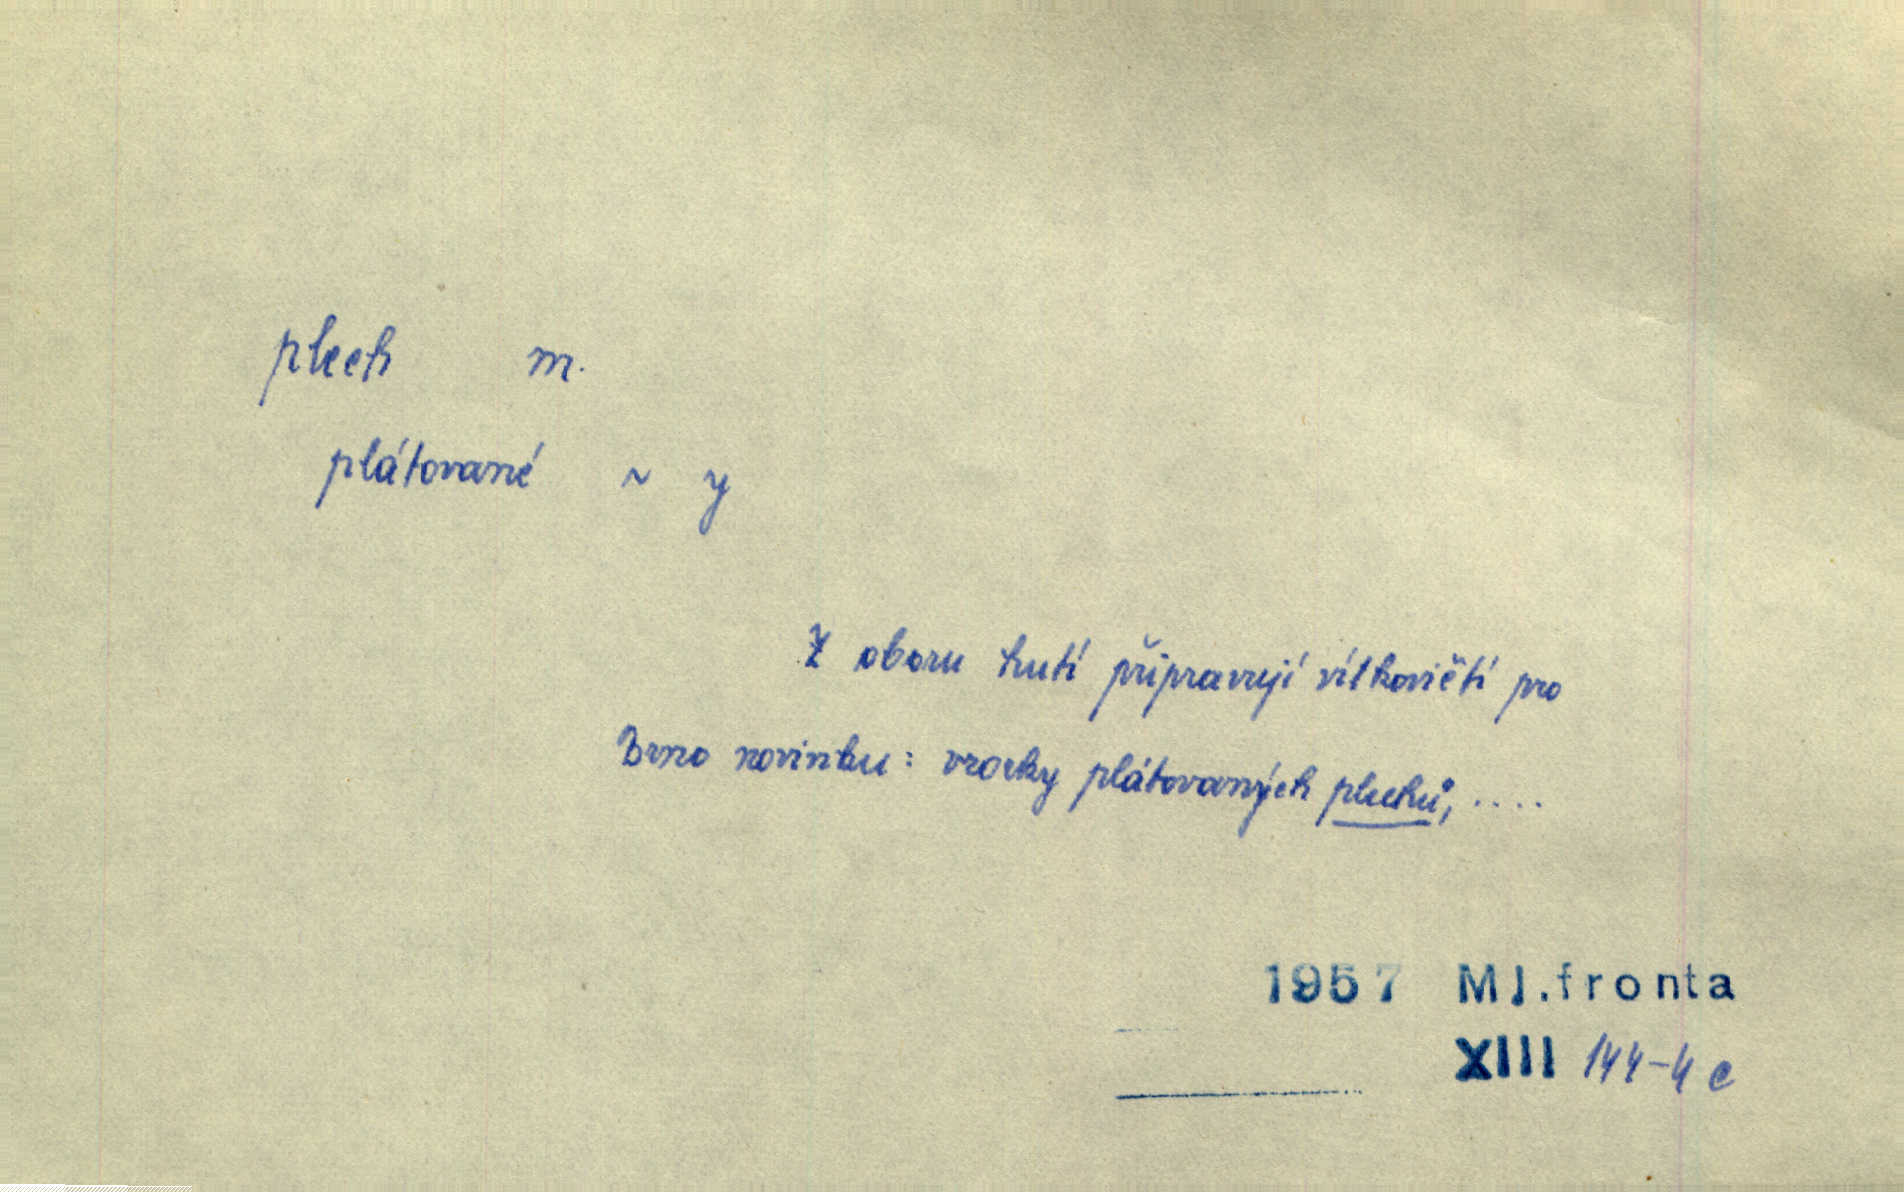 plech m.
plátované ~ y
Z oboru hutí připravují vítkovičtí pro
Brno novinku: vzorky plátovaných plechů, ....
1957 Ml.fronta
XIII 144-4 c